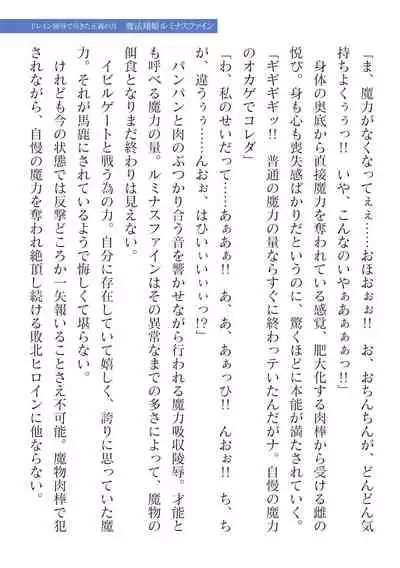 魔法翔姫ルミナスファイン
「ま、魔力がなくなってぇぇ……おほおぉぉ!!　お、おちんちんが、どんどん気
持ちよくぅぅっ!!　いや、こんなのいやぁあぁぁぁっ!!」
身体の奥底から直接魔力を奪われている感覚、肥大化する肉棒から受ける雌の
悦び。身も心も喪失感ばかりだというのに、驚くほどに本能が満たされていく。
「ギギギギッ!!　普通の魔力の量ならすぐに終わっテいたんだがナ。自慢の魔力
のオカゲでコレダ」
「わ、私のせいだって……あぁあぁ!!　あ、あ、あぁっひ!!　んおぉ!!　ち、ち
が、違うぅぅ……んおぉ、はひいぃいぃぃっ!?」
パンパンと肉のぶつかり合う音を響かせながら行われる魔力吸収陵辱。才能と
も呼べる魔力の量。ルミナスファインはその異常なまでの多さによって、魔物の
餌食となりまだ終わりは見えない。
イビルゲートと戦う為の力。自分に存在していて嬉しく、誇りに思っていた魔
力。それが馬鹿にされているようで悔しくて堪らない。
けれども今の状態では反撃どころか一矢報いることさえ不可能。魔物肉棒で犯
されながら、自慢の魔力を奪われ絶頂し続ける敗北ヒロインに他ならない。